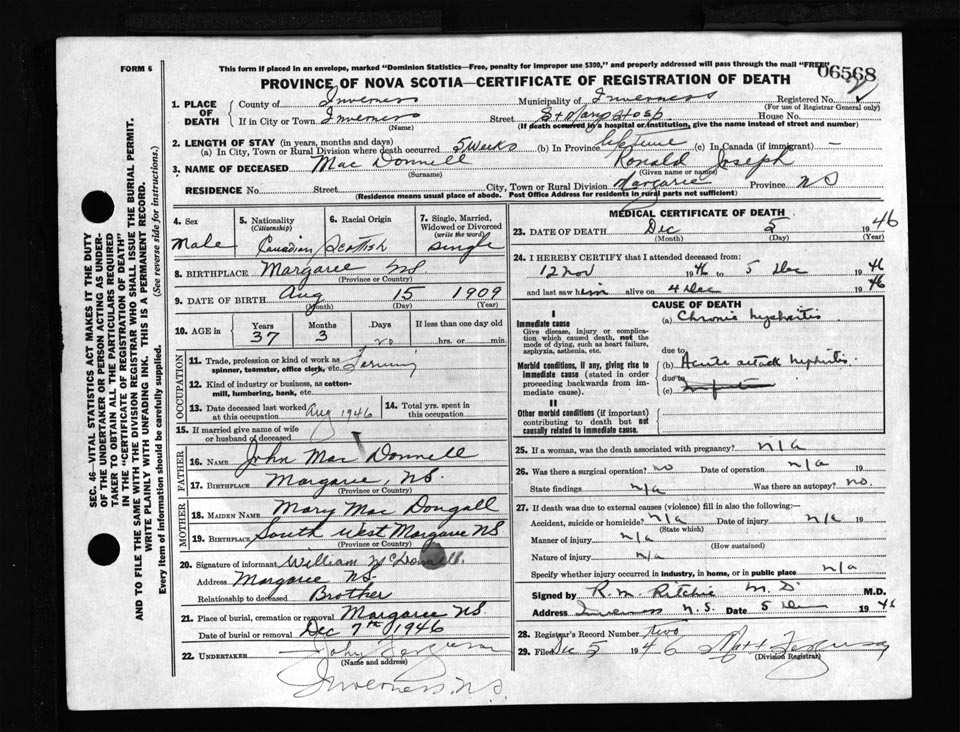 FORM 6
This form if placed in an envelope, marked "Dominion Statistics—Free, penalty for improper use $300," and properly addressed will pass through the mail "FREE"
06568
PROVINCE OF NOVA SCOTIA—CERTIFICATE OF REGISTRATION OF DEATH
1. PLACE OF DEATH
County of Inverness Municipality of Inverness Registered No.
(For use of Registrar General only)
If in City or Town Inverness Street St Marys Hosp House No.
(Name) (If death occurred in a hospital or institution, give the name instead of street and number)
2. LENGTH OF STAY (in years, months and days)
(a) In City, Town or Rural Division where death occurred 5 Weeks (b) In Province lifetime (c) In Canada (if immigrant) —
3. NAME OF DECEASED Mac Donnell Ronald Joseph
(Surname) (Given name or names)
RESIDENCE No. Street City, Town or Rural Division Margaree Province NS
(Residence means usual place of abode. Post Office Address for residents in rural parts not sufficient)
SEC. 46—VITAL STATISTICS ACT MAKES IT THE DUTY
OF THE UNDERTAKER OR PERSON ACTING AS UNDER-
TAKER TO OBTAIN ALL THE PARTICULARS REQUIRED
IN THE "CERTIFICATE OF REGISTRATION OF DEATH"
AND TO FILE THE SAME WITH THE DIVISION REGISTRAR WHO SHALL ISSUE THE BURIAL PERMIT.
WRITE PLAINLY WITH UNFADING INK. THIS IS A PERMANENT RECORD.
Every item of information should be carefully supplied. (See reverse side for instructions.)
4. Sex
Male
5. Nationality
(Citizenship)
Canadian
6. Racial Origin
Scottish
7. Single, Married,
Widowed or Divorced
(write the word)
Single
8. BIRTHPLACE Margaree NS
(Province or Country)
9. DATE OF BIRTH Aug 15 1909
(Month) (Day) (Year)
10. AGE in
Years Months Days If less than one day old
37 3 20 hrs. or min.
OCCUPATION
11. Trade, profession or kind of work as
spinner, teamster, office clerk, etc.
12. Kind of industry or business, as cotton-
mill, lumbering, bank, etc.
13. Date deceased last worked
at this occupation Aug 1946
14. Total yrs. spent in
this occupation
15. If married give name of wife
or husband of deceased
FATHER
16. NAME John Mac Donnell
17. BIRTHPLACE Margaree, NS.
(Province or Country)
MOTHER
18. MAIDEN NAME Mary Mac Dougall
19. BIRTHPLACE South West Margaree NS
(Province or Country)
20. Signature of informant William McDonnell
Address Margaree NS.
Relationship to deceased Brother
21. Place of burial, cremation or removal Margaree NS
Date of burial or removal Dec 7th 1946
22. UNDERTAKER John Ferguson
(Name and address)
Inverness, N.S.
MEDICAL CERTIFICATE OF DEATH
23. DATE OF DEATH Dec 5 1946
(Month) (Day) (Year)
24. I HEREBY CERTIFY that I attended deceased from:
12 Nov 1946 to 5 Dec 1946
and last saw him alive on 4 Dec 1946
CAUSE OF DEATH
I
Immediate cause (a) Chronic nephritis
Give disease, injury or complica-
tion which caused death, not the
mode of dying, such as heart failure,
asphyxia, asthenia, etc.
due to
Morbid conditions, if any, giving rise to
immediate cause (stated in order
proceeding backwards from im-
mediate cause).
(b) Acute attack nephritis.
due to
(c)
II
Other morbid conditions (if important)
contributing to death but not
causally related to immediate cause.
25. If a woman, was the death associated with pregnancy? n/a
26. Was there a surgical operation? no Date of operation n/a 19
State findings n/a Was there an autopsy? no.
27. If death was due to external causes (violence) fill in also the following:
Accident, suicide or homicide? n/a Date of injury n/a 19
(State which)
Manner of injury n/a
(How sustained)
Nature of injury n/a
Specify whether injury occurred in industry, in home, or in public place n/a
Signed by R. M. Ritchie M. D. M.D.
Address Inverness N.S. Date 5 Dec 1946
28. Registrar's Record Number two
29. Filed Dec 5 1946
(Division Registrar)